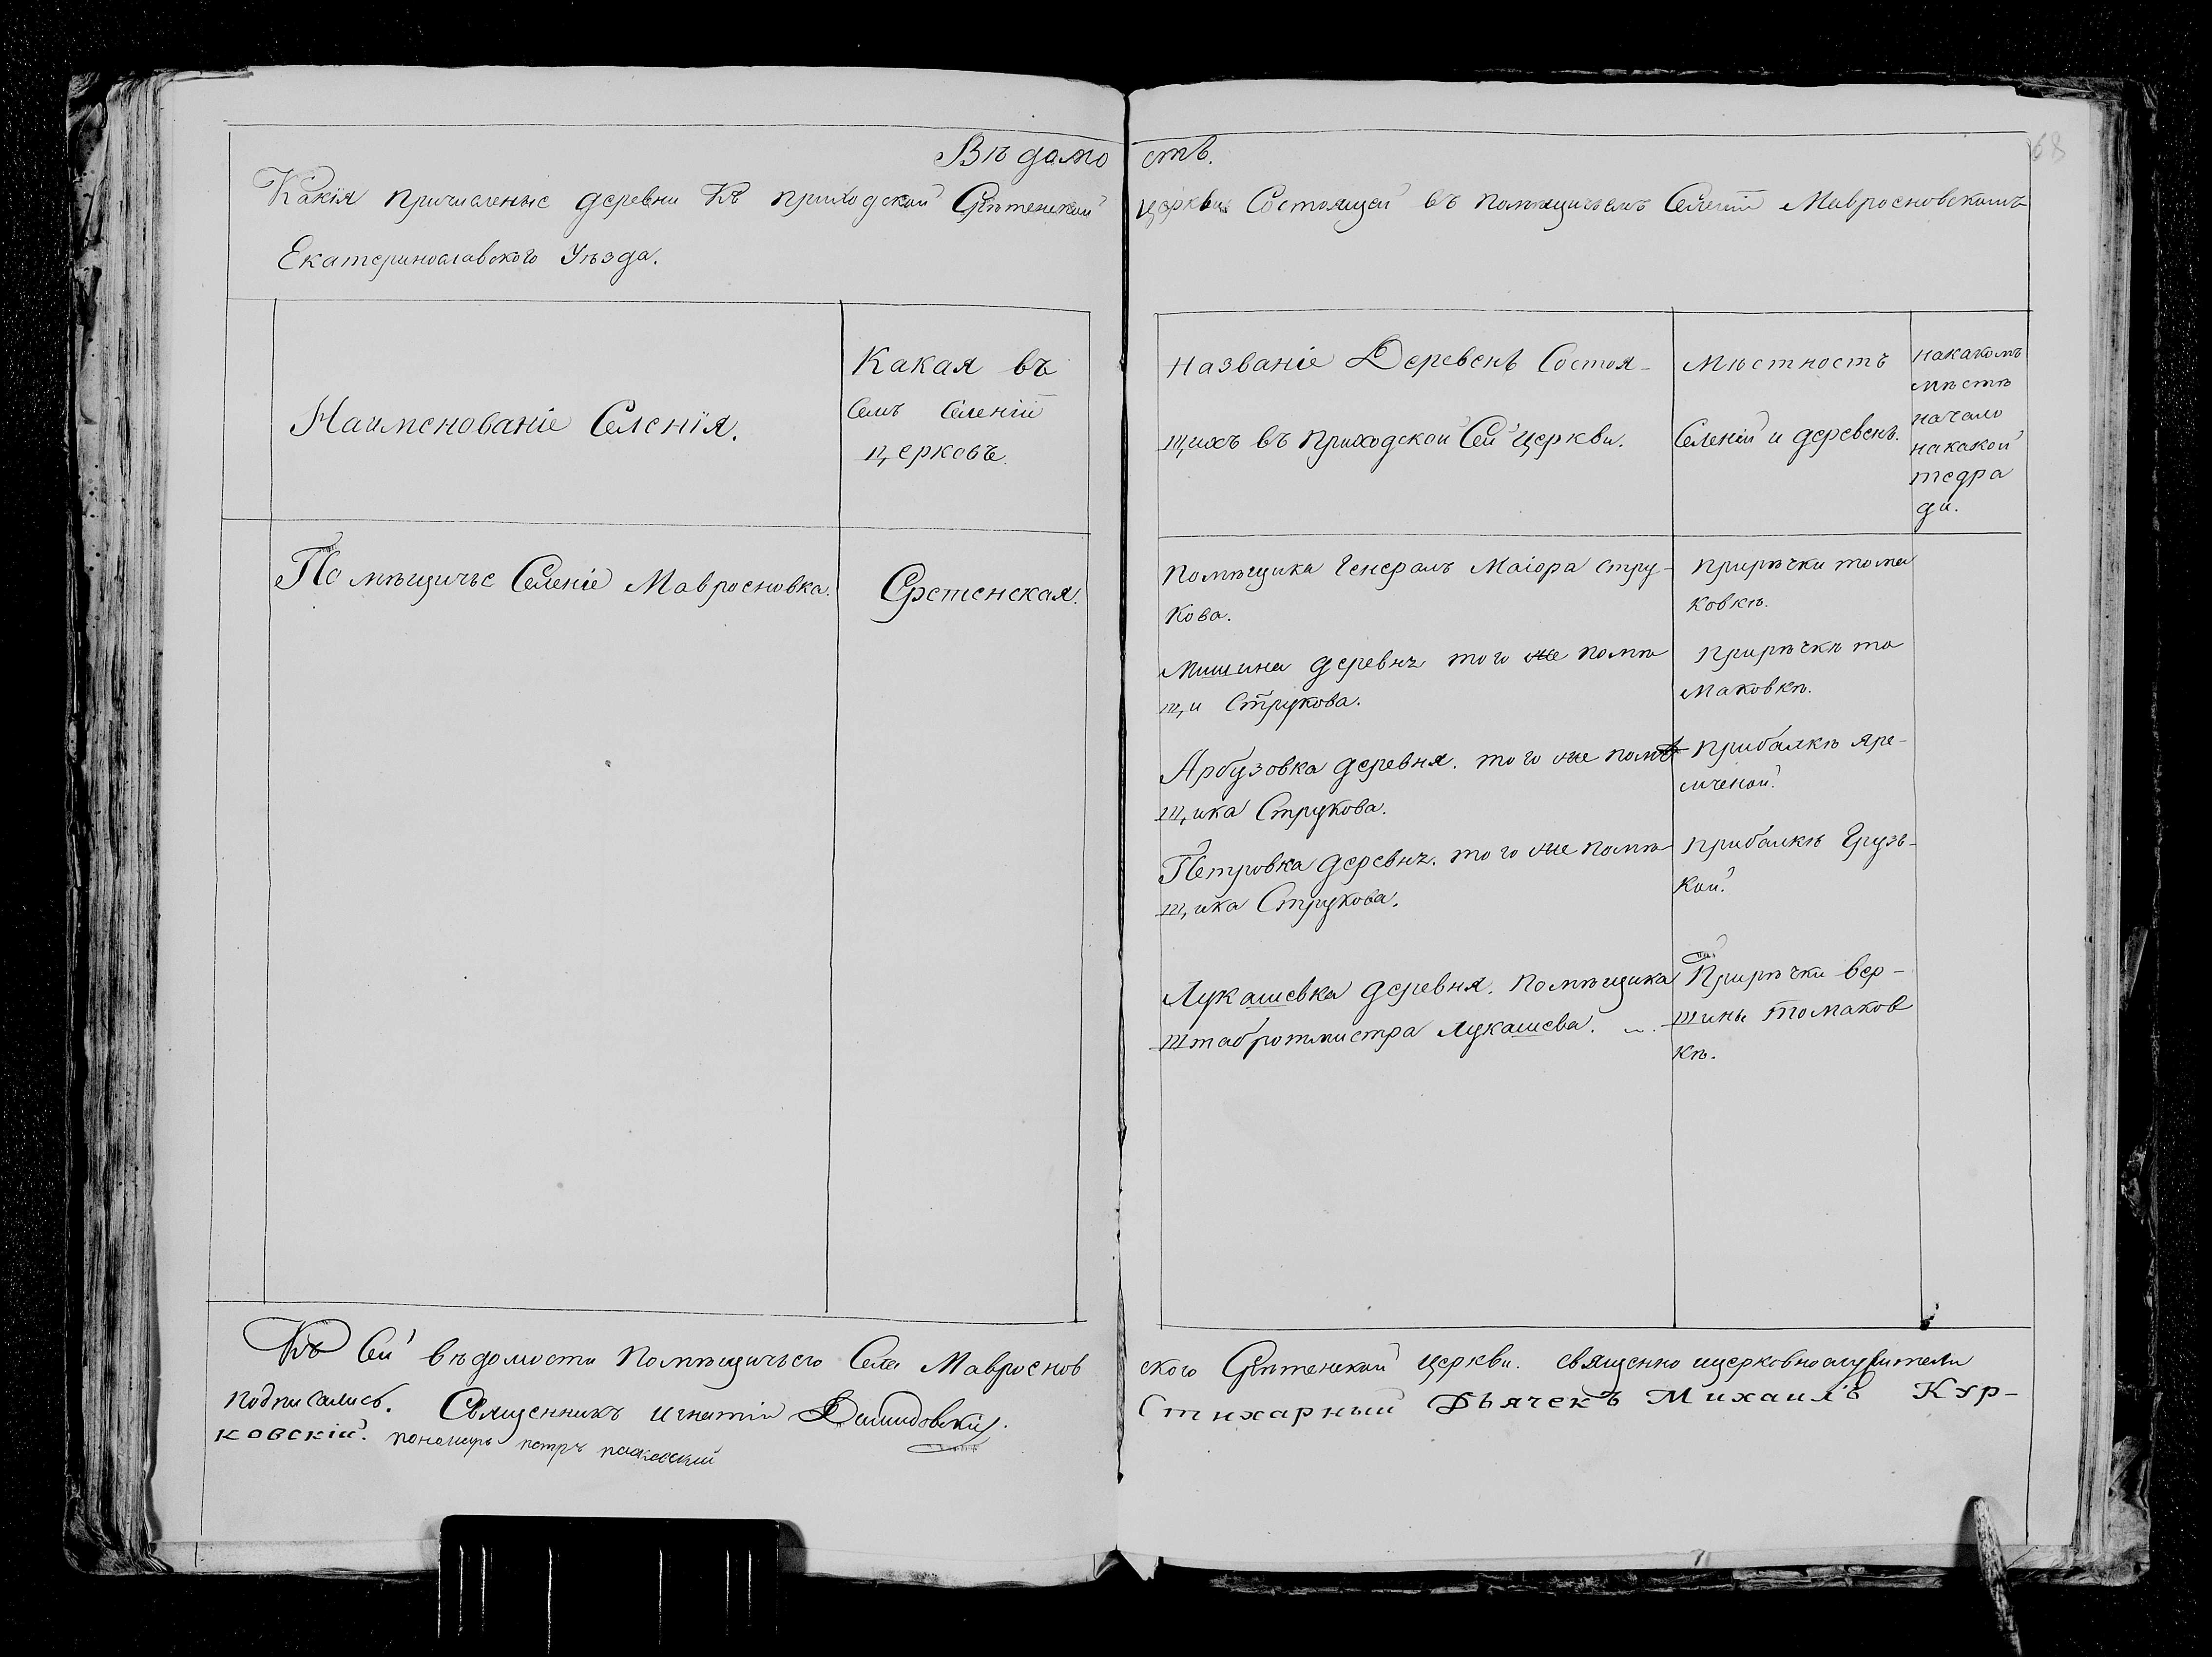 Вѣдомо сть.
68
Какія причисленые деревни Къ приходской Срѣтенской церквы Состоящей въ помѣщичьемъ Селеніи Мавросновскомъ
Екатеринославского Уѣзда.
Наименованіе Селенія.
Какая въ
семъ Селеніи
церковъ
Названіе Деревень Состоя-
щихъ въ приходской Сей церкви.
Мѣстность
Селеній и деревень.
накакомъ
мѣстѣ
начало
накакой
тедра
ди.
Помѣщичье Селеніе Мавросновка.
Сретенская.
помѣщика Генералъ Маіора Стру-
кова.
прирѣчки тома
ковкѣ.
Мишина деревнѣ того же помѣ
щи Струкова.
прирѣчкѣ то
маковкѣ.
Арбузовка деревня. того же помѣ
щика Струкова.
прибалкѣ Яре-
мченой.
Петровка деревнѣ. того же помѣ
щика Струкова.
прибалкѣ Грузъ-
кой.
Лукашевка деревня. помѣщика
штабротмистра Лукашева.
Прирѣчки вер-
шины томаков
кѣ.
Къ Сей вѣдомости помѣщичьего Села Мавроснов ского Срѣтенской церкви. священно ицерковнослужители
подписались. Священникъ Игнатій Стихарный Дьячекъ Михаилъ Кур-
ковскій. пономарь петръ